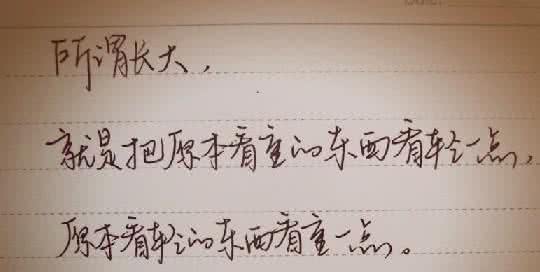 所谓长大，
就是把原本看重的东西看轻一点，
原本看轻的东西看重一点。